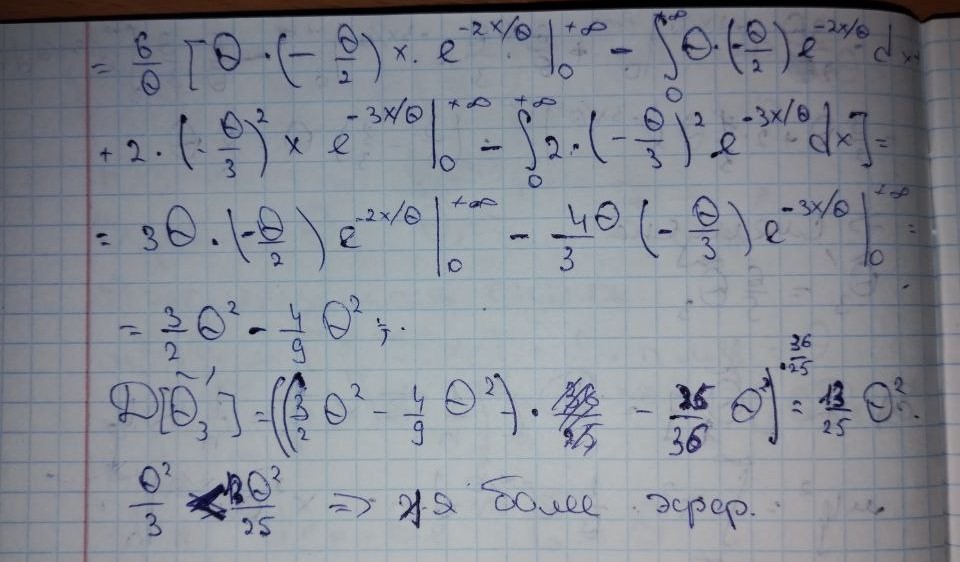 = 6/θ [ θ · (- θ/2) x · e^{-2x/θ} |_0^{+∞} - ∫_0^{+∞} θ · (- θ/2) e^{-2x/θ} dx +
+ 2 · (- θ/3)^2 x e^{-3x/θ} |_0^{+∞} - ∫_0^{+∞} 2 · (- θ/3)^2 e^{-3x/θ} dx ] =
= 3θ · (- θ/2) e^{-2x/θ} |_0^{+∞} - 4θ/3 (- θ/3) e^{-3x/θ} |_0^{+∞} =
= 3/2 θ^2 - 4/9 θ^2 ;
D[θ̃_3'] = ((3/2 θ^2 - 4/9 θ^2) - 25/36 θ^2) · 36/25 = 13/25 θ^2.
θ^2/3 < 13θ^2/25 => 1-я более эфф.